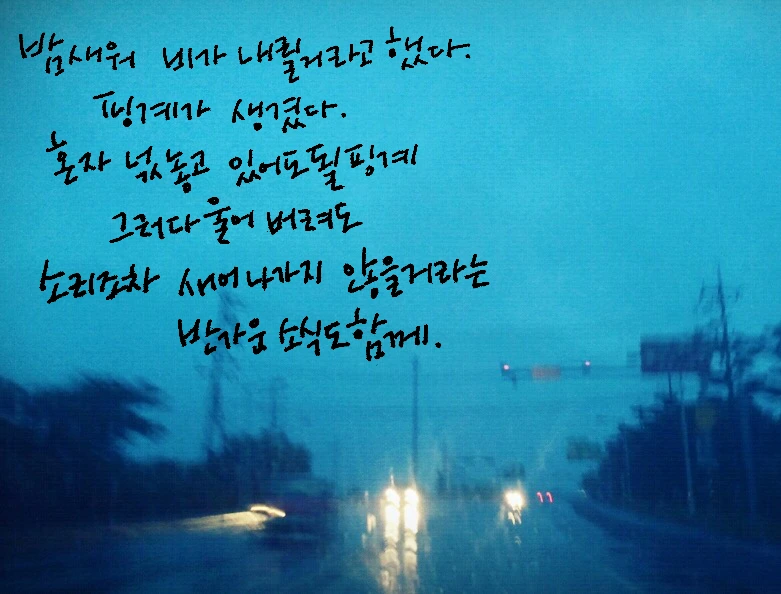 밤새워 비가 내릴거라고 했다.
핑계가 생겼다.
혼자 넋놓고 있어도 될 핑계
그러다 울어 버려도
소리조차 새어나가지 않을거라는
반가운 소식도 함께.